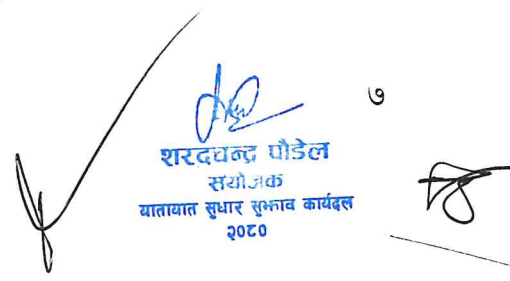 ७
शरदचन्द्र पौडेल
संयोजक
यातायात सुधार सुझाव कार्यदल
२०८०